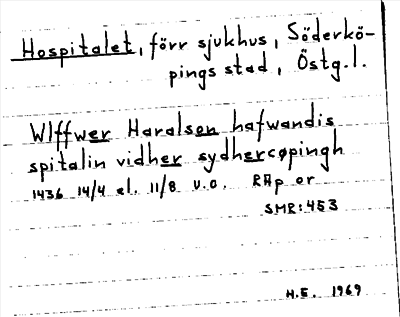 Hospitalet, förr sjukhus, Söderkö-
pings stad, Östg.l.
Wlffwer Haralson hafwandis
spitalin vidher sydhercøpingh
1436 14/4 el. 11/8 u.o. RAp or
SMR:453
H.E. 1969